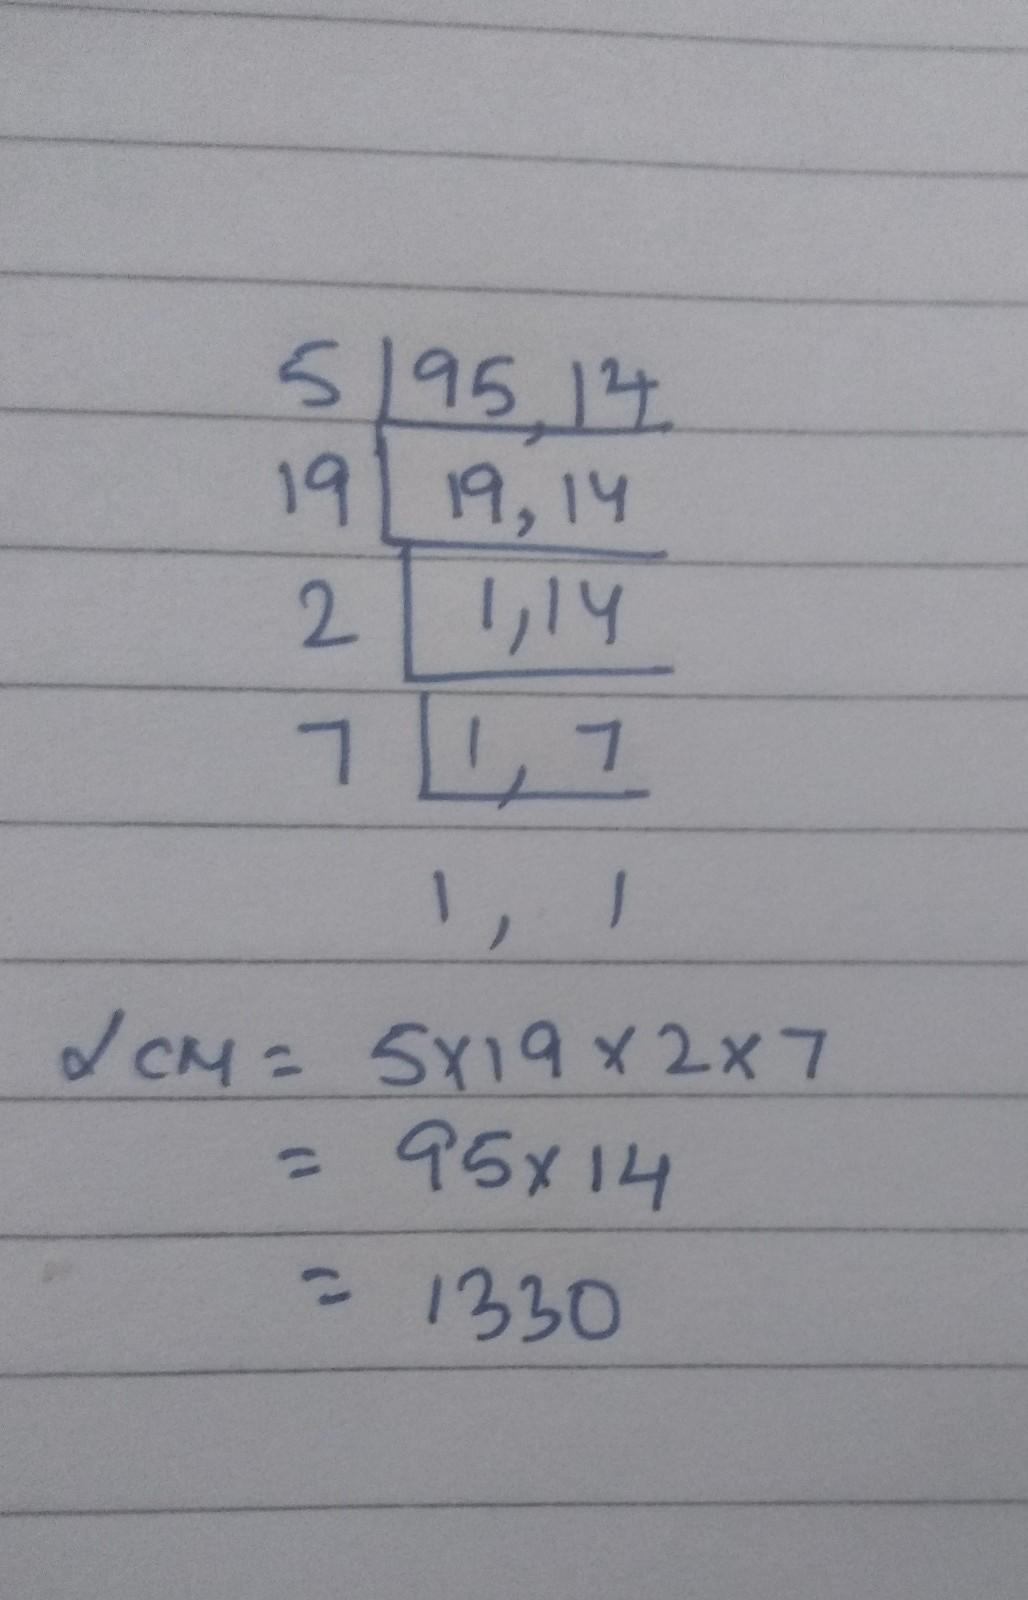 5 | 95, 14
19 | 19, 14
2 | 1, 14
7 | 1, 7
1, 1
LCM = 5x19x2x7
= 95x14
= 1330